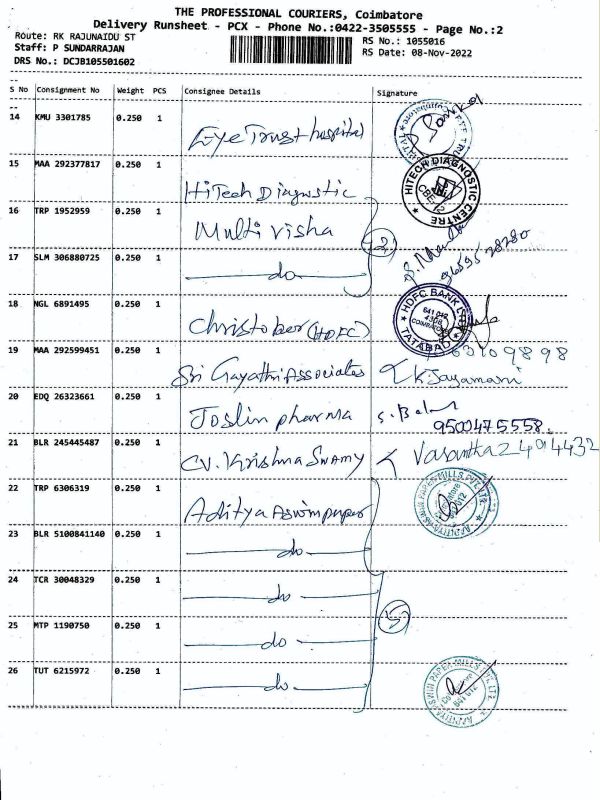 THE PROFESSIONAL COURIERS, Coimbatore
Delivery Runsheet - PCX - Phone No.:0422-3505555 - Page No.:2
Route: RK RAJUNAIDU ST
RS No.: 1055016
Staff: P SUNDARRAJAN
RS Date: 08-Nov-2022
DRS No.: DCJB105501602
S No Consignment No Weight PCS Consignee Details Signature
14 KMU 3301785 0.250 1 Eye Trust hospital
15 MAA 292377817 0.250 1 HiTech Diagnostic HITECH DIAGNOSTIC CENTRE
16 TRP 1952959 0.250 1 Multi visha
17 SLM 306880725 0.250 1 do
18 NGL 6891495 0.250 1 Christober (HDFC) HDFC BANK LTD TATABAD
19 MAA 292599451 0.250 1 Sri Gayathri Associates K. Jayamani
20 EDQ 26323661 0.250 1 Joslin pharma
21 BLR 245445487 0.250 1 CV. Krishna Swamy Vasantha 2404432
22 TRP 6306319 0.250 1 Aditya Aswin paper
23 BLR 5100841140 0.250 1 do
24 TCR 30048329 0.250 1 do
25 MTP 1190750 0.250 1 do
5
26 TUT 6215972 0.250 1 do